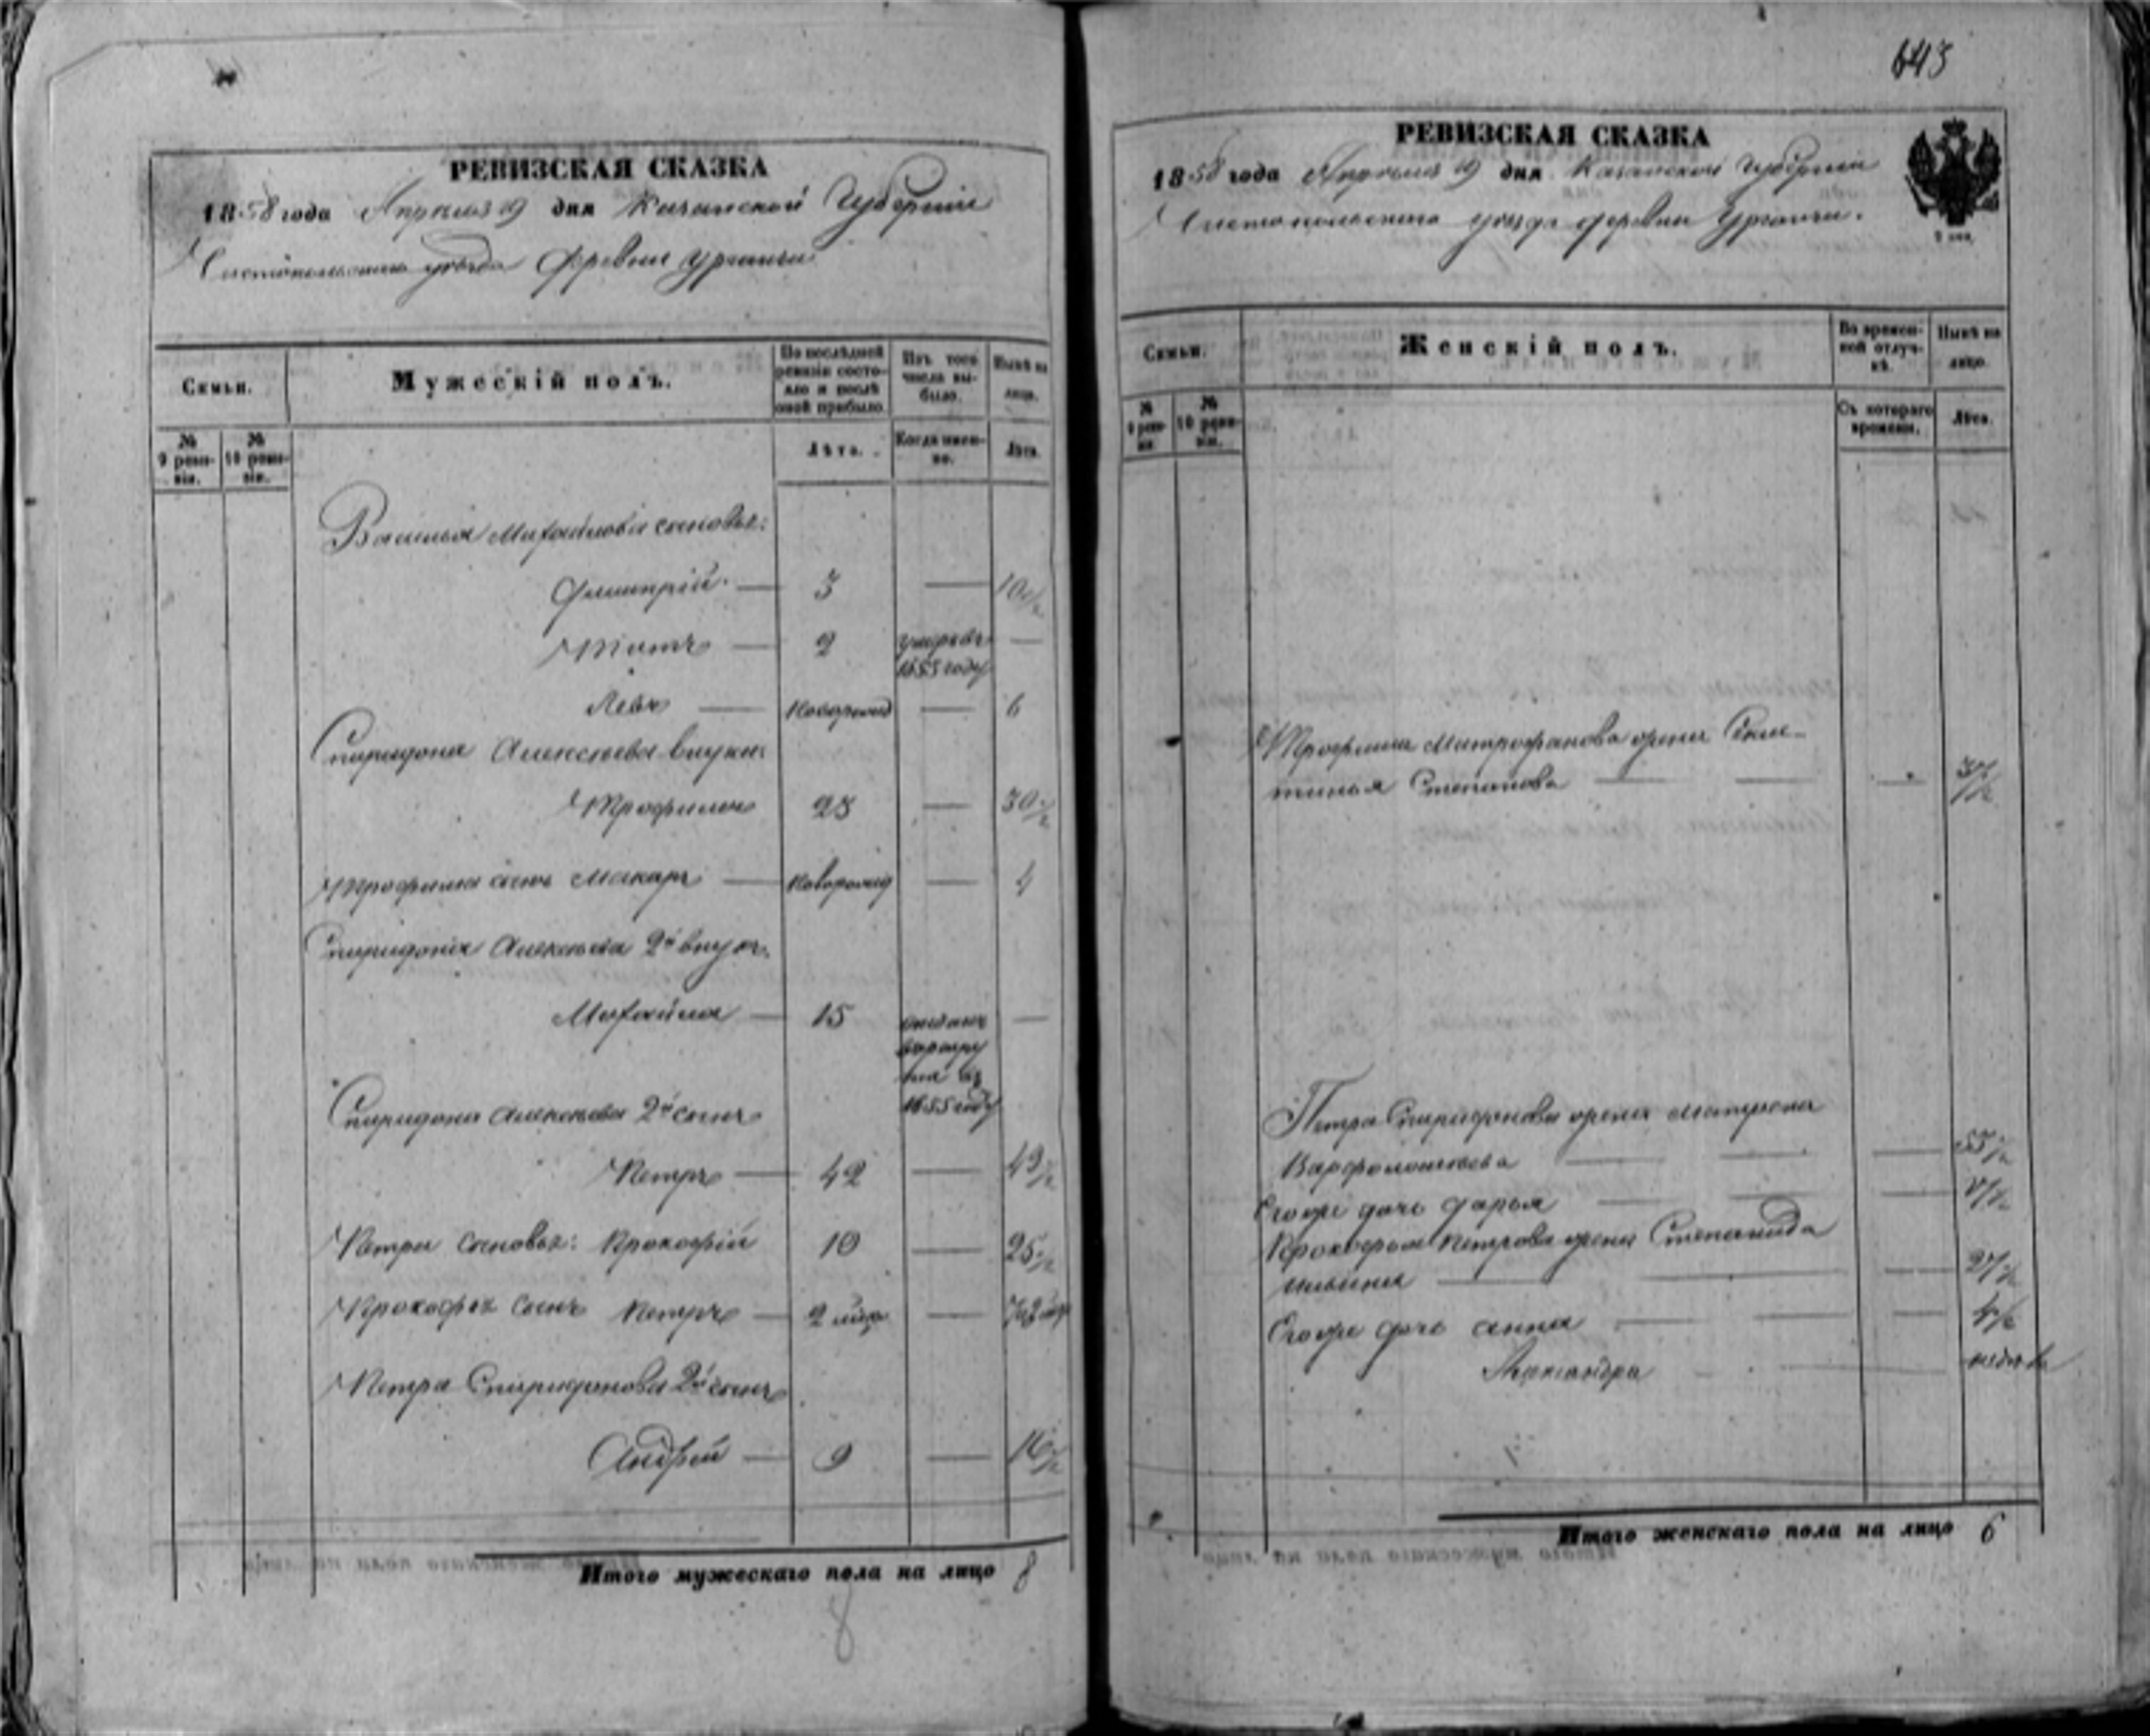 643
РЕВИЗСКАЯ СКАЗКА
1858 года Апреля 19 дня Казанской Губернии
Чистопольскаго уезда деревни Урганчи
Семьи.
Мужескій полъ.
По послѣдней ревизіи состояло и послѣ оной прибыло.
Изъ того числа выбыло.
Нынѣ на лицо.
№ 9 ревизіи.
№ 10 ревизіи.
Лѣта.
Когда именно.
Лѣта.
Василья Михайлова сыновья:
Димитрій 3 — 10 1/2
Титъ 2 умеръ 1855 году —
Левъ новорожд — 6
Спиридона Алексѣева внуки:
Трофимъ 23 — 30 1/2
Трофима сынъ Макаръ новорожд — 4
Спиридона Алексѣева 2й внукъ
Михайла 15 отданъ в рекруты в 1855 году —
Спиридона Алексѣева 2й сынъ
Петръ 42 — 49 1/2
Петра сыновья: Прокофій 18 — 25 1/2
Прокофья сынъ Петръ 2 мѣр —
Петра Спиридонова 2й сынъ
Андрей 9 — 16 1/2
Итого мужескаго пола на лицо 8
8
РЕВИЗСКАЯ СКАЗКА
1858 года Апреля 19 дня Казанской Губерніи
Чистопольскаго уезда деревни Урганчи.
Семьи.
Женскій полъ.
Во временной отлучкѣ.
Нынѣ на лицо.
№ 9 ревизіи.
№ 10 ревизіи.
Съ котораго времени.
Лѣта.
Трофима Митрофанова жена
Степанова — 37 1/2
Петра Спиридонова жена Матрена
Варфоломѣева — 55 1/2
Его же дочь Дарья —
Прокофья Петрова жена Степанида
Ильина — 27 1/2
Его же дочь Анна — 4 1/2
Александра — недель
Итого женскаго пола на лицо 6